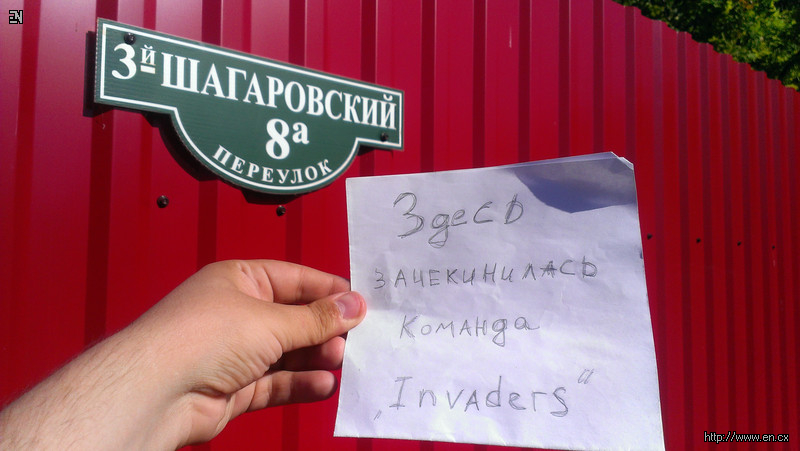 EN
3й ШАГАРОВСКИЙ
8а
ПЕРЕУЛОК
Здесь
ЗАЧЕКИНИЛАСЬ
Команда
„Invaders“
http://www.en.cx